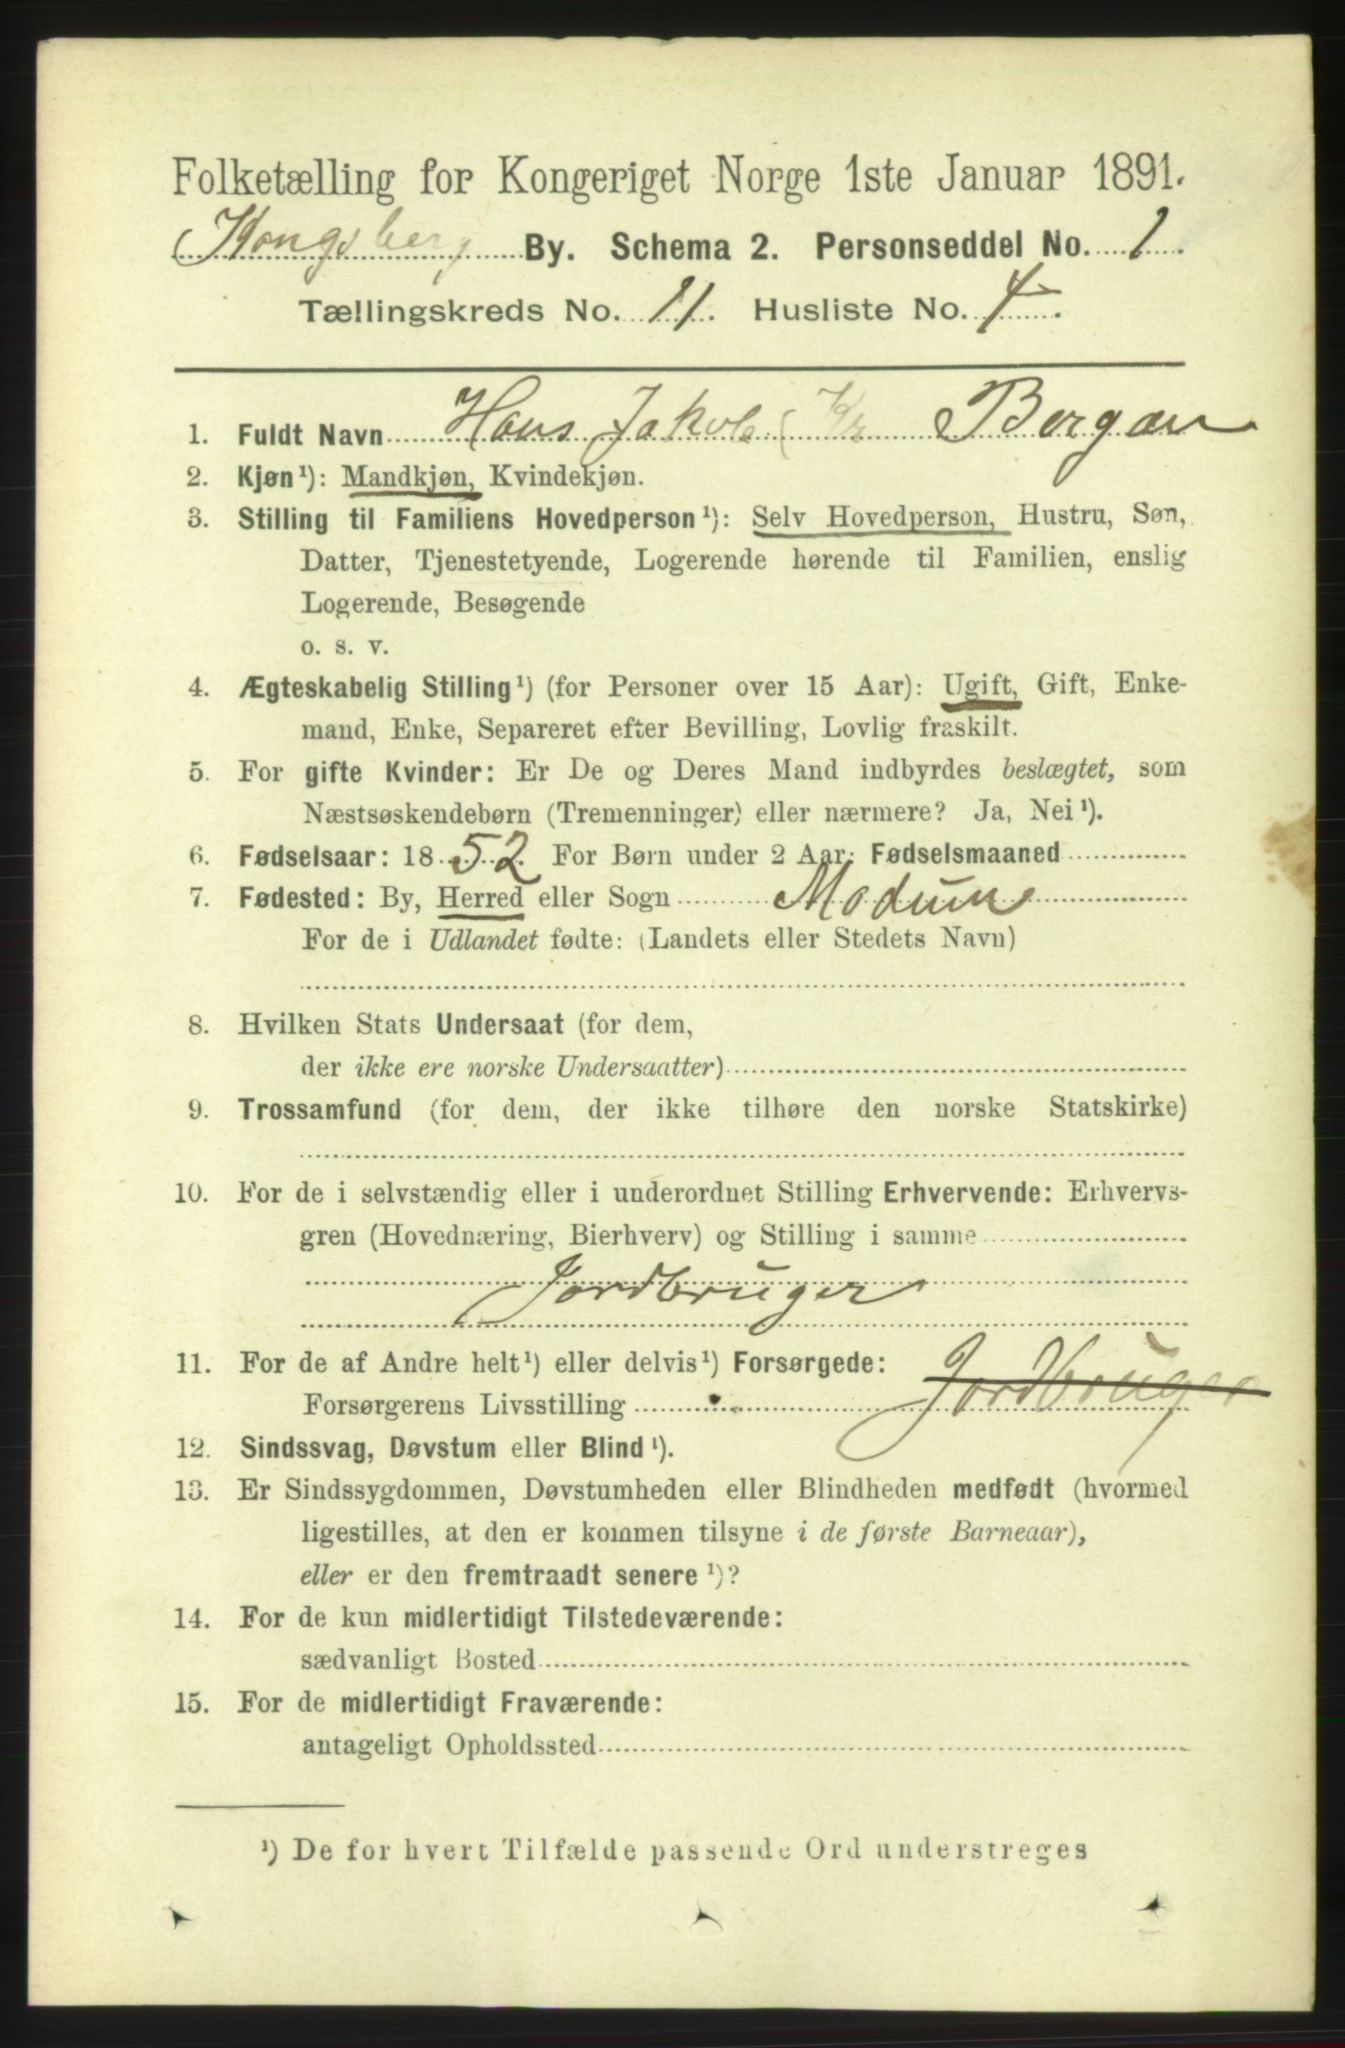 Folketælling for Kongeriget Norge 1ste Januar 1891.
Kongsberg By. Schema 2. Personseddel No. 1.
Tællingskreds No. 11. Husliste No. 4.
1. Fuldt Navn Hans Jakob ( Bergan
2. Kjøn¹): Mandkjøn, Kvindekjøn.
3. Stilling til Familiens Hovedperson¹): Selv Hovedperson, Hustru, Søn,
Datter, Tjenestetyende, Logerende hørende til Familien, enslig
Logerende, Besøgende
o. s. v.
4. Ægteskabelig Stilling¹) (for Personer over 15 Aar): Ugift, Gift, Enke-
mand, Enke, Separeret efter Bevilling, Lovlig fraskilt.
5. For gifte Kvinder: Er De og Deres Mand indbyrdes beslægtet, som
Næstsøskendebørn (Tremenninger) eller nærmere? Ja, Nei¹).
6. Fødselsaar: 1852. For Børn under 2 Aar: Fødselsmaaned
7. Fødested: By, Herred eller Sogn Modum
For de i Udlandet fødte: (Landets eller Stedets Navn)
8. Hvilken Stats Undersaat (for dem,
der ikke ere norske Undersaatter)
9. Trossamfund (for dem, der ikke tilhøre den norske Statskirke)
10. For de i selvstændig eller i underordnet Stilling Erhvervende: Erhvervs-
gren (Hovednæring, Bierhverv) og Stilling i samme
Jordbruger
11. For de af Andre helt¹) eller delvis¹) Forsørgede:
Forsørgerens Livsstilling Jordbruger
12. Sindssvag, Døvstum eller Blind¹).
13. Er Sindssygdommen, Døvstumheden eller Blindheden medfødt (hvormed
ligestilles, at den er kommen tilsyne i de første Barneaar),
eller er den fremtraadt senere¹)?
14. For de kun midlertidigt Tilstedeværende:
sædvanligt Bosted
15. For de midlertidigt Fraværende:
antageligt Opholdssted
¹) De for hvert Tilfælde passende Ord understreges